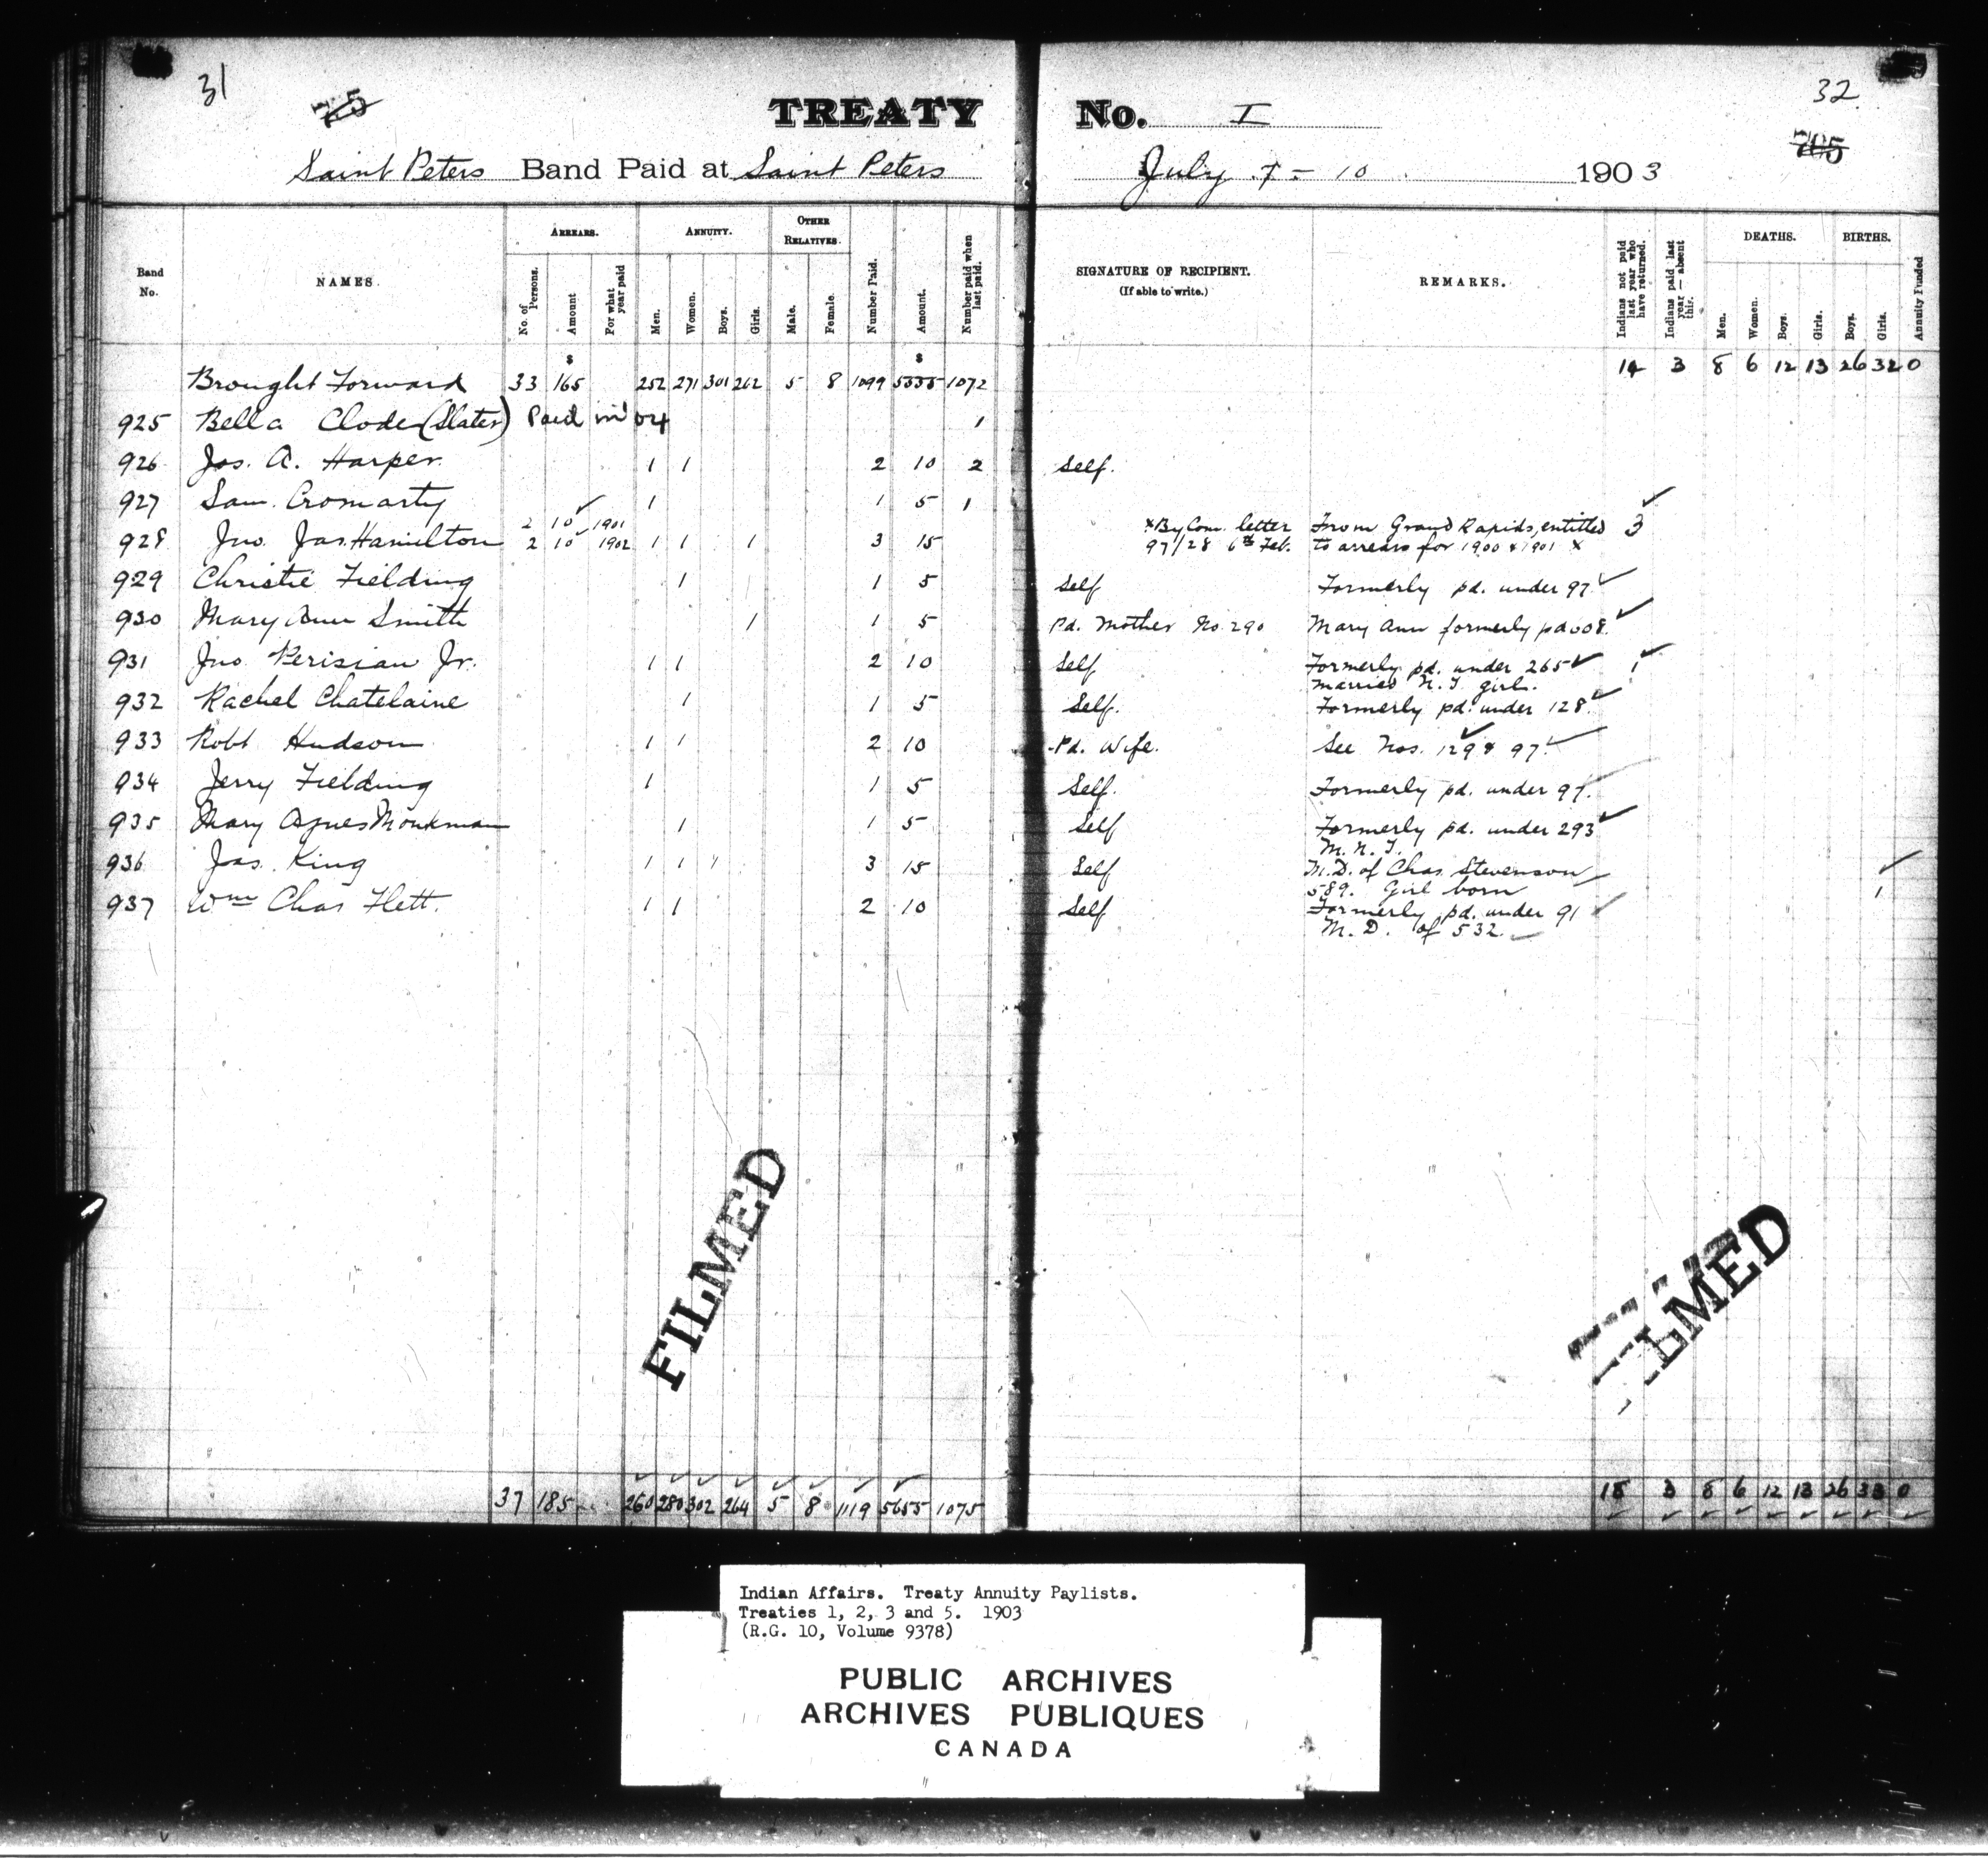 31
75
TREATY No. I
32
705
Saint Peters Band Paid at Saint Peters July 7 - 10 1903
Band No. NAMES. ARREARS. No. of Persons. Amount For what year paid ANNUITY. Men. Women. Boys. Girls. OTHER RELATIVES. Male. Female. Number Paid. Amount. Number paid when last paid.
SIGNATURE OF RECIPIENT. (If able to write.) REMARKS. Indians not paid last year who have returned. Indians paid last year — absent this. DEATHS. Men. Women. Boys. Girls. BIRTHS. Boys. Girls. Annuity Funded
$ $
Brought Forward 33 165 252 271 301 262 5 8 1099 5335 1072 14 3 8 6 12 13 26 32 0
925 Bella Clode (Slater) Paid in 04 1
926 Jas. A. Harper 1 1 2 10 2 Self.
927 Sam. Cromarty 1 1 5 1
2 10 1901
928 Jno. Jas. Hamilton 2 10 1902 1 1 1 3 15 x By Com. letter From Grand Rapids, entitled 3
97/28 6th Feb. to arrears for 1900 & 1901 x
929 Christie Fielding 1 1 5 Self Formerly pd. under 97
930 Mary Ann Smith 1 1 5 Pd. Mother No. 290 Mary Ann formerly pd 008.
931 Jno. Perisian Jr. 1 1 2 10 Self Formerly pd. under 265 1
married N. T. girl.
932 Rachel Chatelaine 1 1 5 Self. Formerly pd. under 128
933 Robt. Hudson 1 1 2 10 Pd. Wife. See Nos. 129 & 97.
934 Jerry Fielding 1 1 5 Self. Formerly pd. under 97.
935 Mary Agnes Monkman 1 1 5 Self Formerly pd. under 293
M. N. T.
936 Jas. King 1 1 1 3 15 Self M. D. of Chas. Stevenson
589. Girl born 1
937 Wm Chas Flett. 1 1 2 10 Self Formerly pd. under 91
M. D. of 532
FILMED
FILMED
37 185 260 280 302 264 5 8 1119 5655 1075 18 3 8 6 12 13 26 33 0
Indian Affairs. Treaty Annuity Paylists.
Treaties 1, 2, 3 and 5. 1903
(R.G. 10, Volume 9378)
PUBLIC ARCHIVES
ARCHIVES PUBLIQUES
CANADA